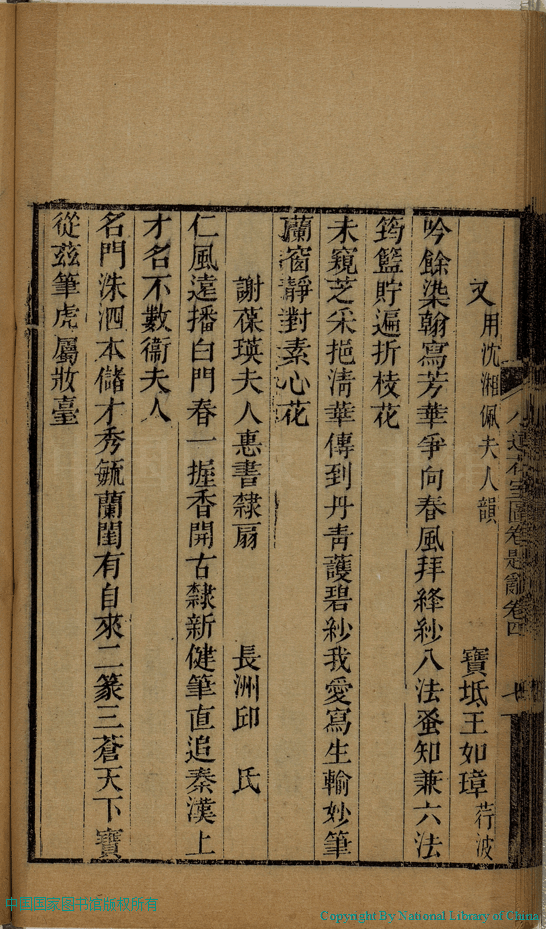 又用沈湘佩夫人韻
寶坻王如璋荇波
吟餘染翰寫芳華爭向春風拜絳紗八法蚤知兼六法
筠籃貯遍折枝花
未窺芝采挹清華傳到丹青護碧紗我愛寫生輸妙筆
蘭窗靜對素心花
謝葆瑛夫人惠書隸扇
長洲邱氏
仁風遠播白門春一握香開古隸新健筆直追秦漢上
才名不數衞夫人
名門洙泗本儲才秀毓蘭閨有自來二篆三蒼天下寶
從茲筆虎屬妝臺
室圖卷題辭卷四
十
中国国家图书馆版权所有
Copyright By National Library of China